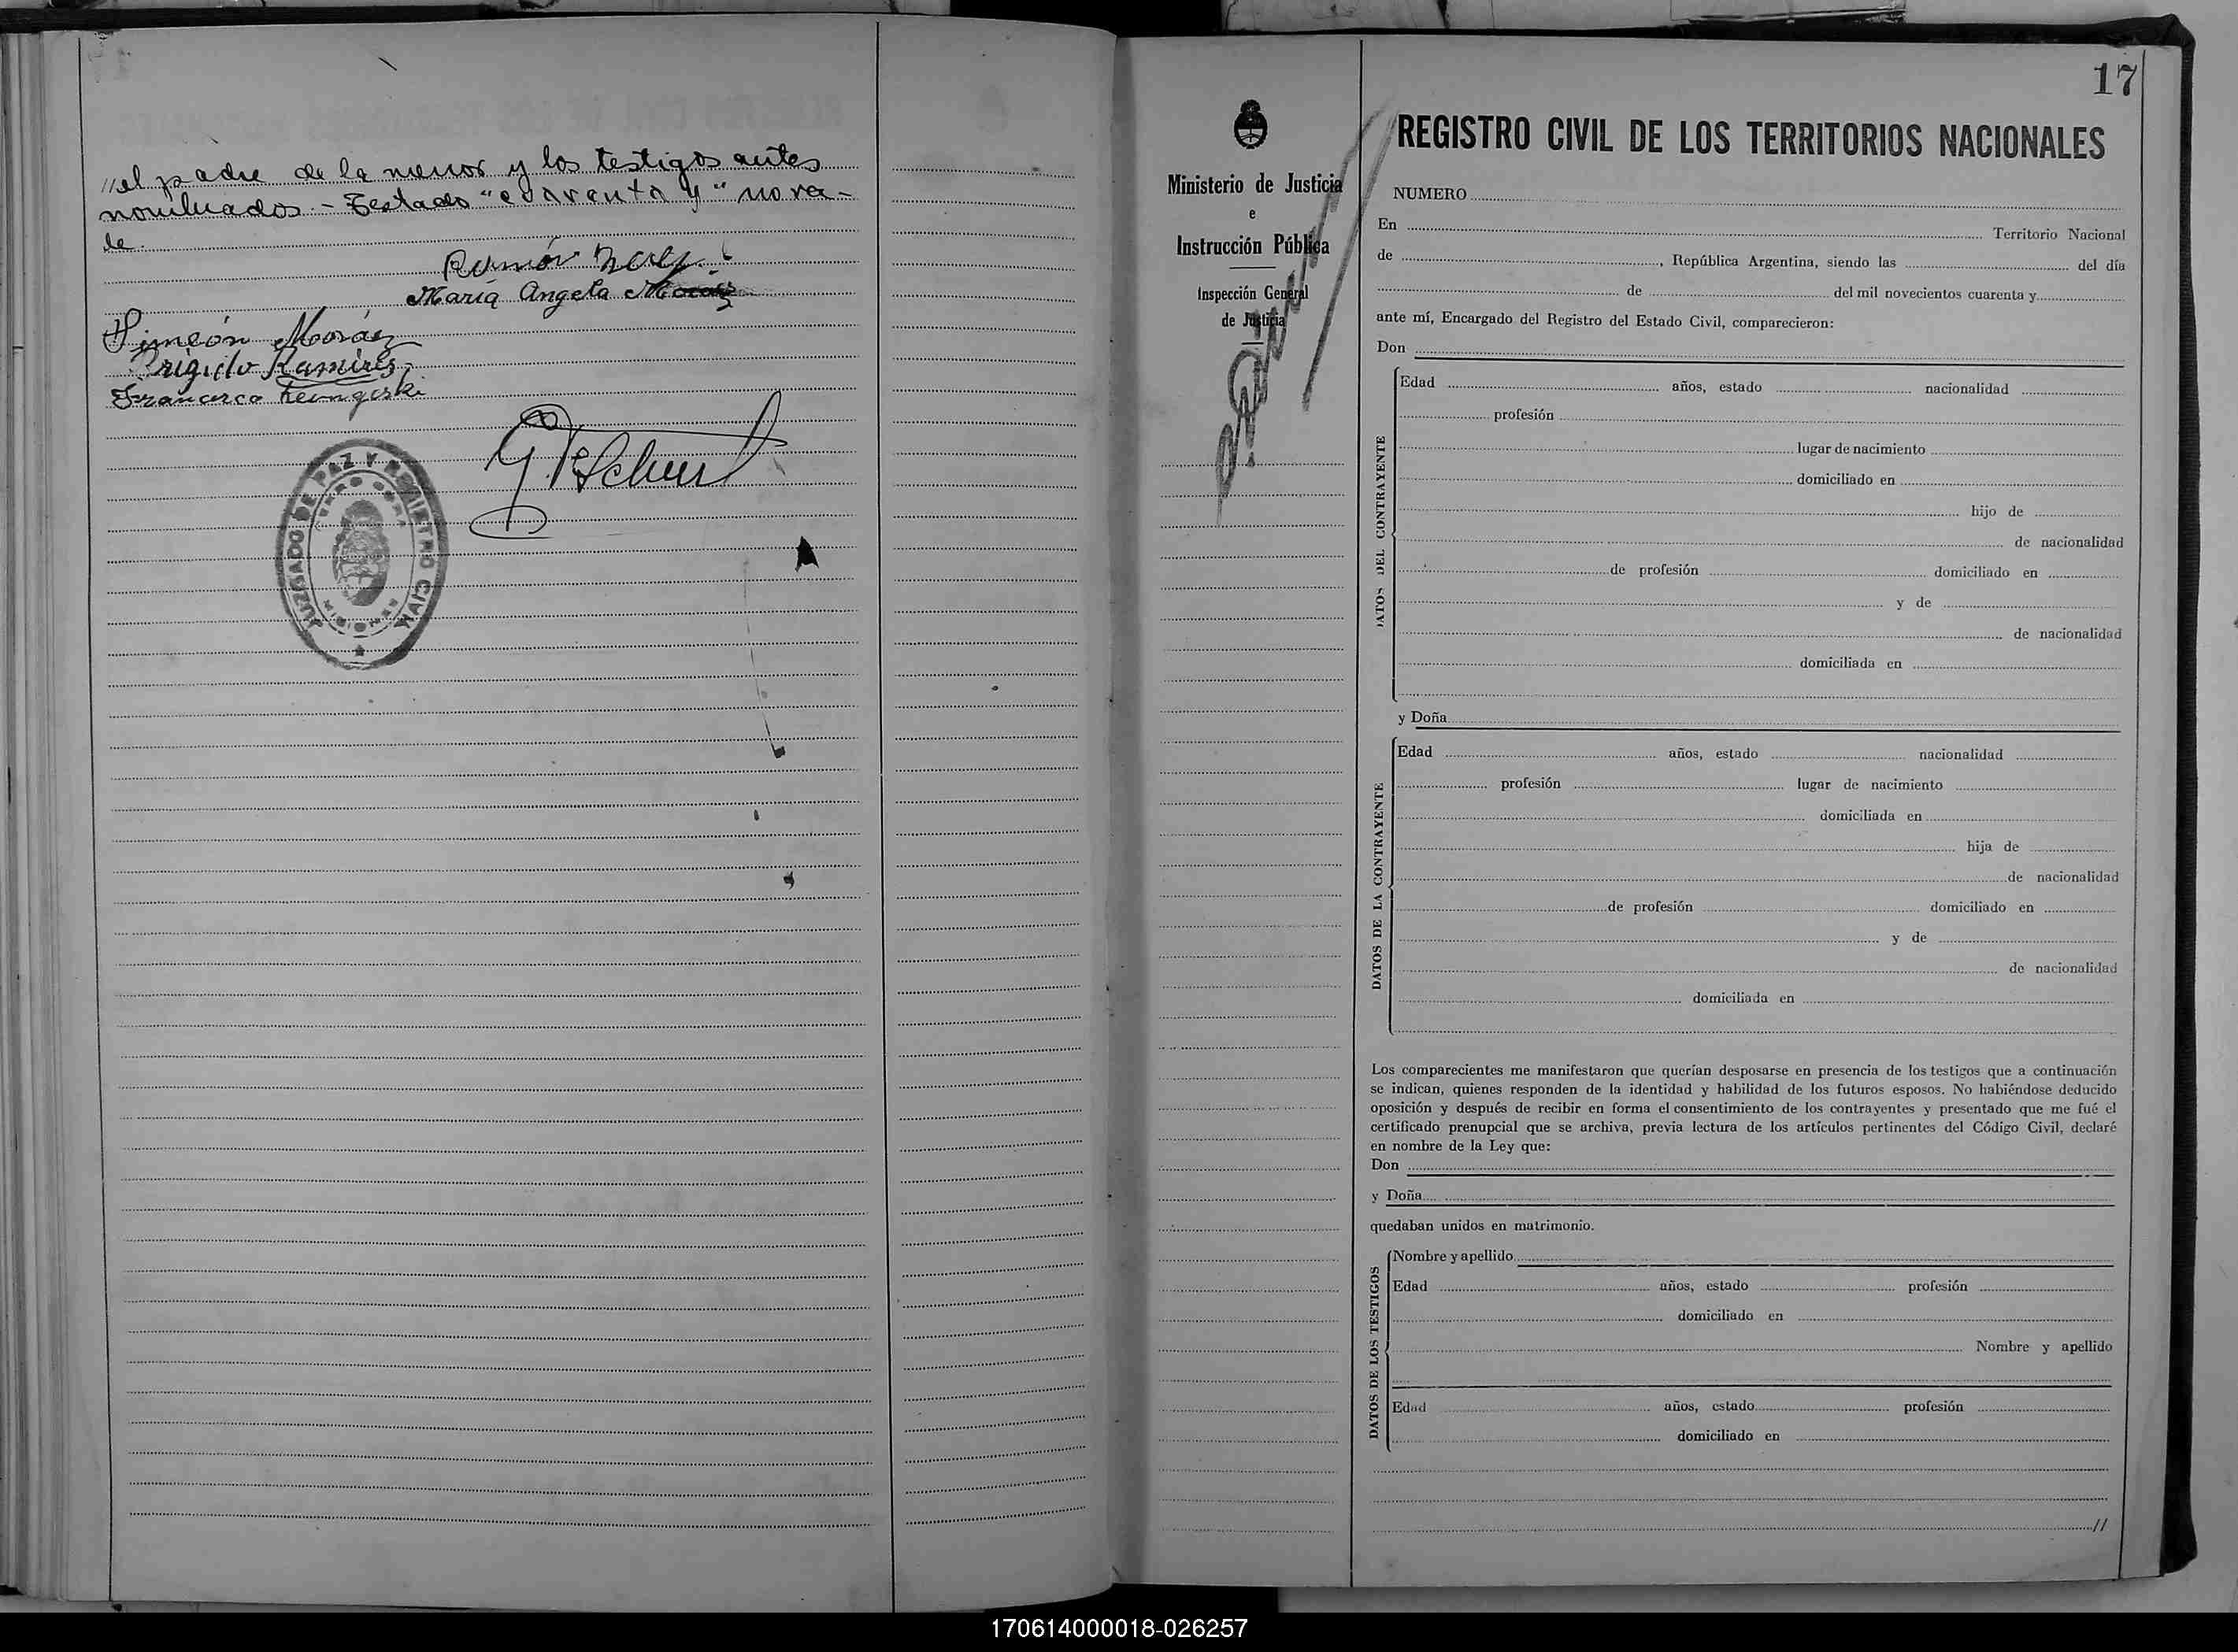 //el padre de la menor y los testigos antes
nombrados.- Testado "cuarenta y" no va-
le.
Ramón
María Angela
Simeón Moráez
Brigido Ramires
Francisco
JUZGADO DE PAZ Y REGISTRO CIVIL
CERRO CORA
MISIONES
17
Ministerio de Justicia
e
Instrucción Pública
Inspección General
de Justicia
REGISTRO CIVIL DE LOS TERRITORIOS NACIONALES
NUMERO
En Territorio Nacional
de , República Argentina, siendo las del día
de del mil novecientos cuarenta y
ante mí, Encargado del Registro del Estado Civil, comparecieron:
Don
DATOS DEL CONTRAYENTE
Edad años, estado nacionalidad
profesión
lugar de nacimiento
domiciliado en
hijo de
de nacionalidad
de profesión domiciliado en
y de
de nacionalidad
domiciliada en
y Doña
DATOS DE LA CONTRAYENTE
Edad años, estado nacionalidad
profesión lugar de nacimiento
domiciliada en
hija de
de nacionalidad
de profesión domiciliado en
y de
de nacionalidad
domiciliada en
Los comparecientes me manifestaron que querían desposarse en presencia de los testigos que a continuación
se indican, quienes responden de la identidad y habilidad de los futuros esposos. No habiéndose deducido
oposición y después de recibir en forma el consentimiento de los contrayentes y presentado que me fué el
certificado prenupcial que se archiva, previa lectura de los artículos pertinentes del Código Civil, declaré
en nombre de la Ley que:
Don
y Doña
quedaban unidos en matrimonio.
DATOS DE LOS TESTIGOS
Nombre y apellido
Edad años, estado profesión
domiciliado en
Nombre y apellido
Edad años, estado profesión
domiciliado en
//
170614000018-026257